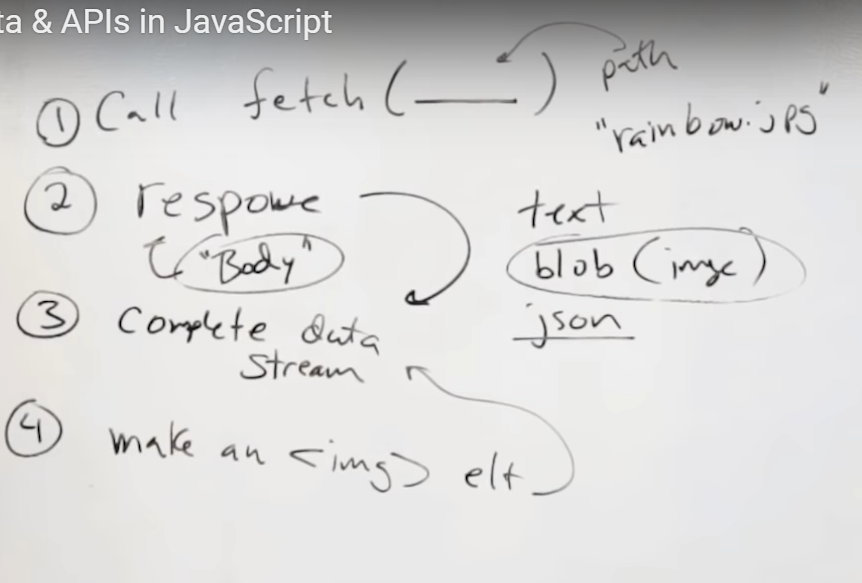 ta & APIs in JavaScript
① Call fetch ( ___ ) path
"rainbow.jpg"
② response text
"Body" blob (image)
③ Complete data json
stream
④ make an <img> elt